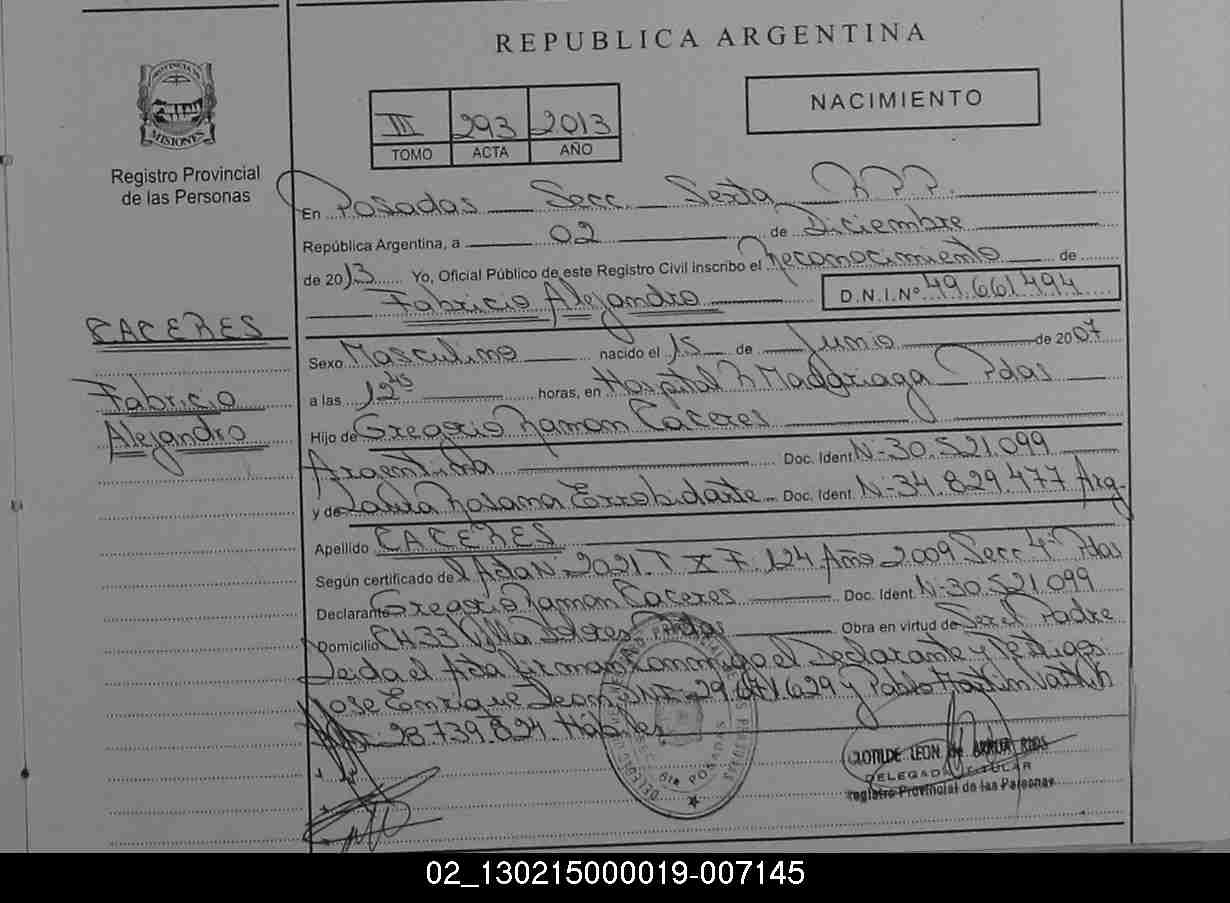 REPUBLICA ARGENTINA
PROVINCIA DE
MISIONES
Registro Provincial
de las Personas
III 293 2013
TOMO ACTA AÑO
NACIMIENTO
En Posadas Secc. Sexta R.P.P.
República Argentina, a 02 de Diciembre
de 2013 Yo, Oficial Público de este Registro Civil inscribo el Reconocimiento de
Fabricio Alejandro D.N.I.Nº 49.661.494
CACERES
Fabricio
Alejandro
Sexo Masculino nacido el 15 de Junio de 2007
a las 12 45 horas, en Hospital R Madariaga Pdas
Hijo de Gregorio Ramon Caceres
Argentina Doc. Ident. N-30.521.099
y de Laura Rosana Errobidarte Doc. Ident. N-34.829.477 Arg-
Apellido CACERES
Según certificado del Acta N-2021.T X F 124 Año 2009 Secc 4º Pdas
Declarante Gregorio Ramon Caceres Doc. Ident. N-30.521.099
Domicilio CH33 Villa Dolores Pdas Obra en virtud de Ser el Padre
Leida el Acta firman conmigo el Declarante y Testigos
Jose Enrique 29.671.629 y Pablo
28.739.824 Hábiles
POSADAS
CLOTILDE LEON
DELEGADA TITULAR
Registro Provincial de las Personas
02_130215000019-007145